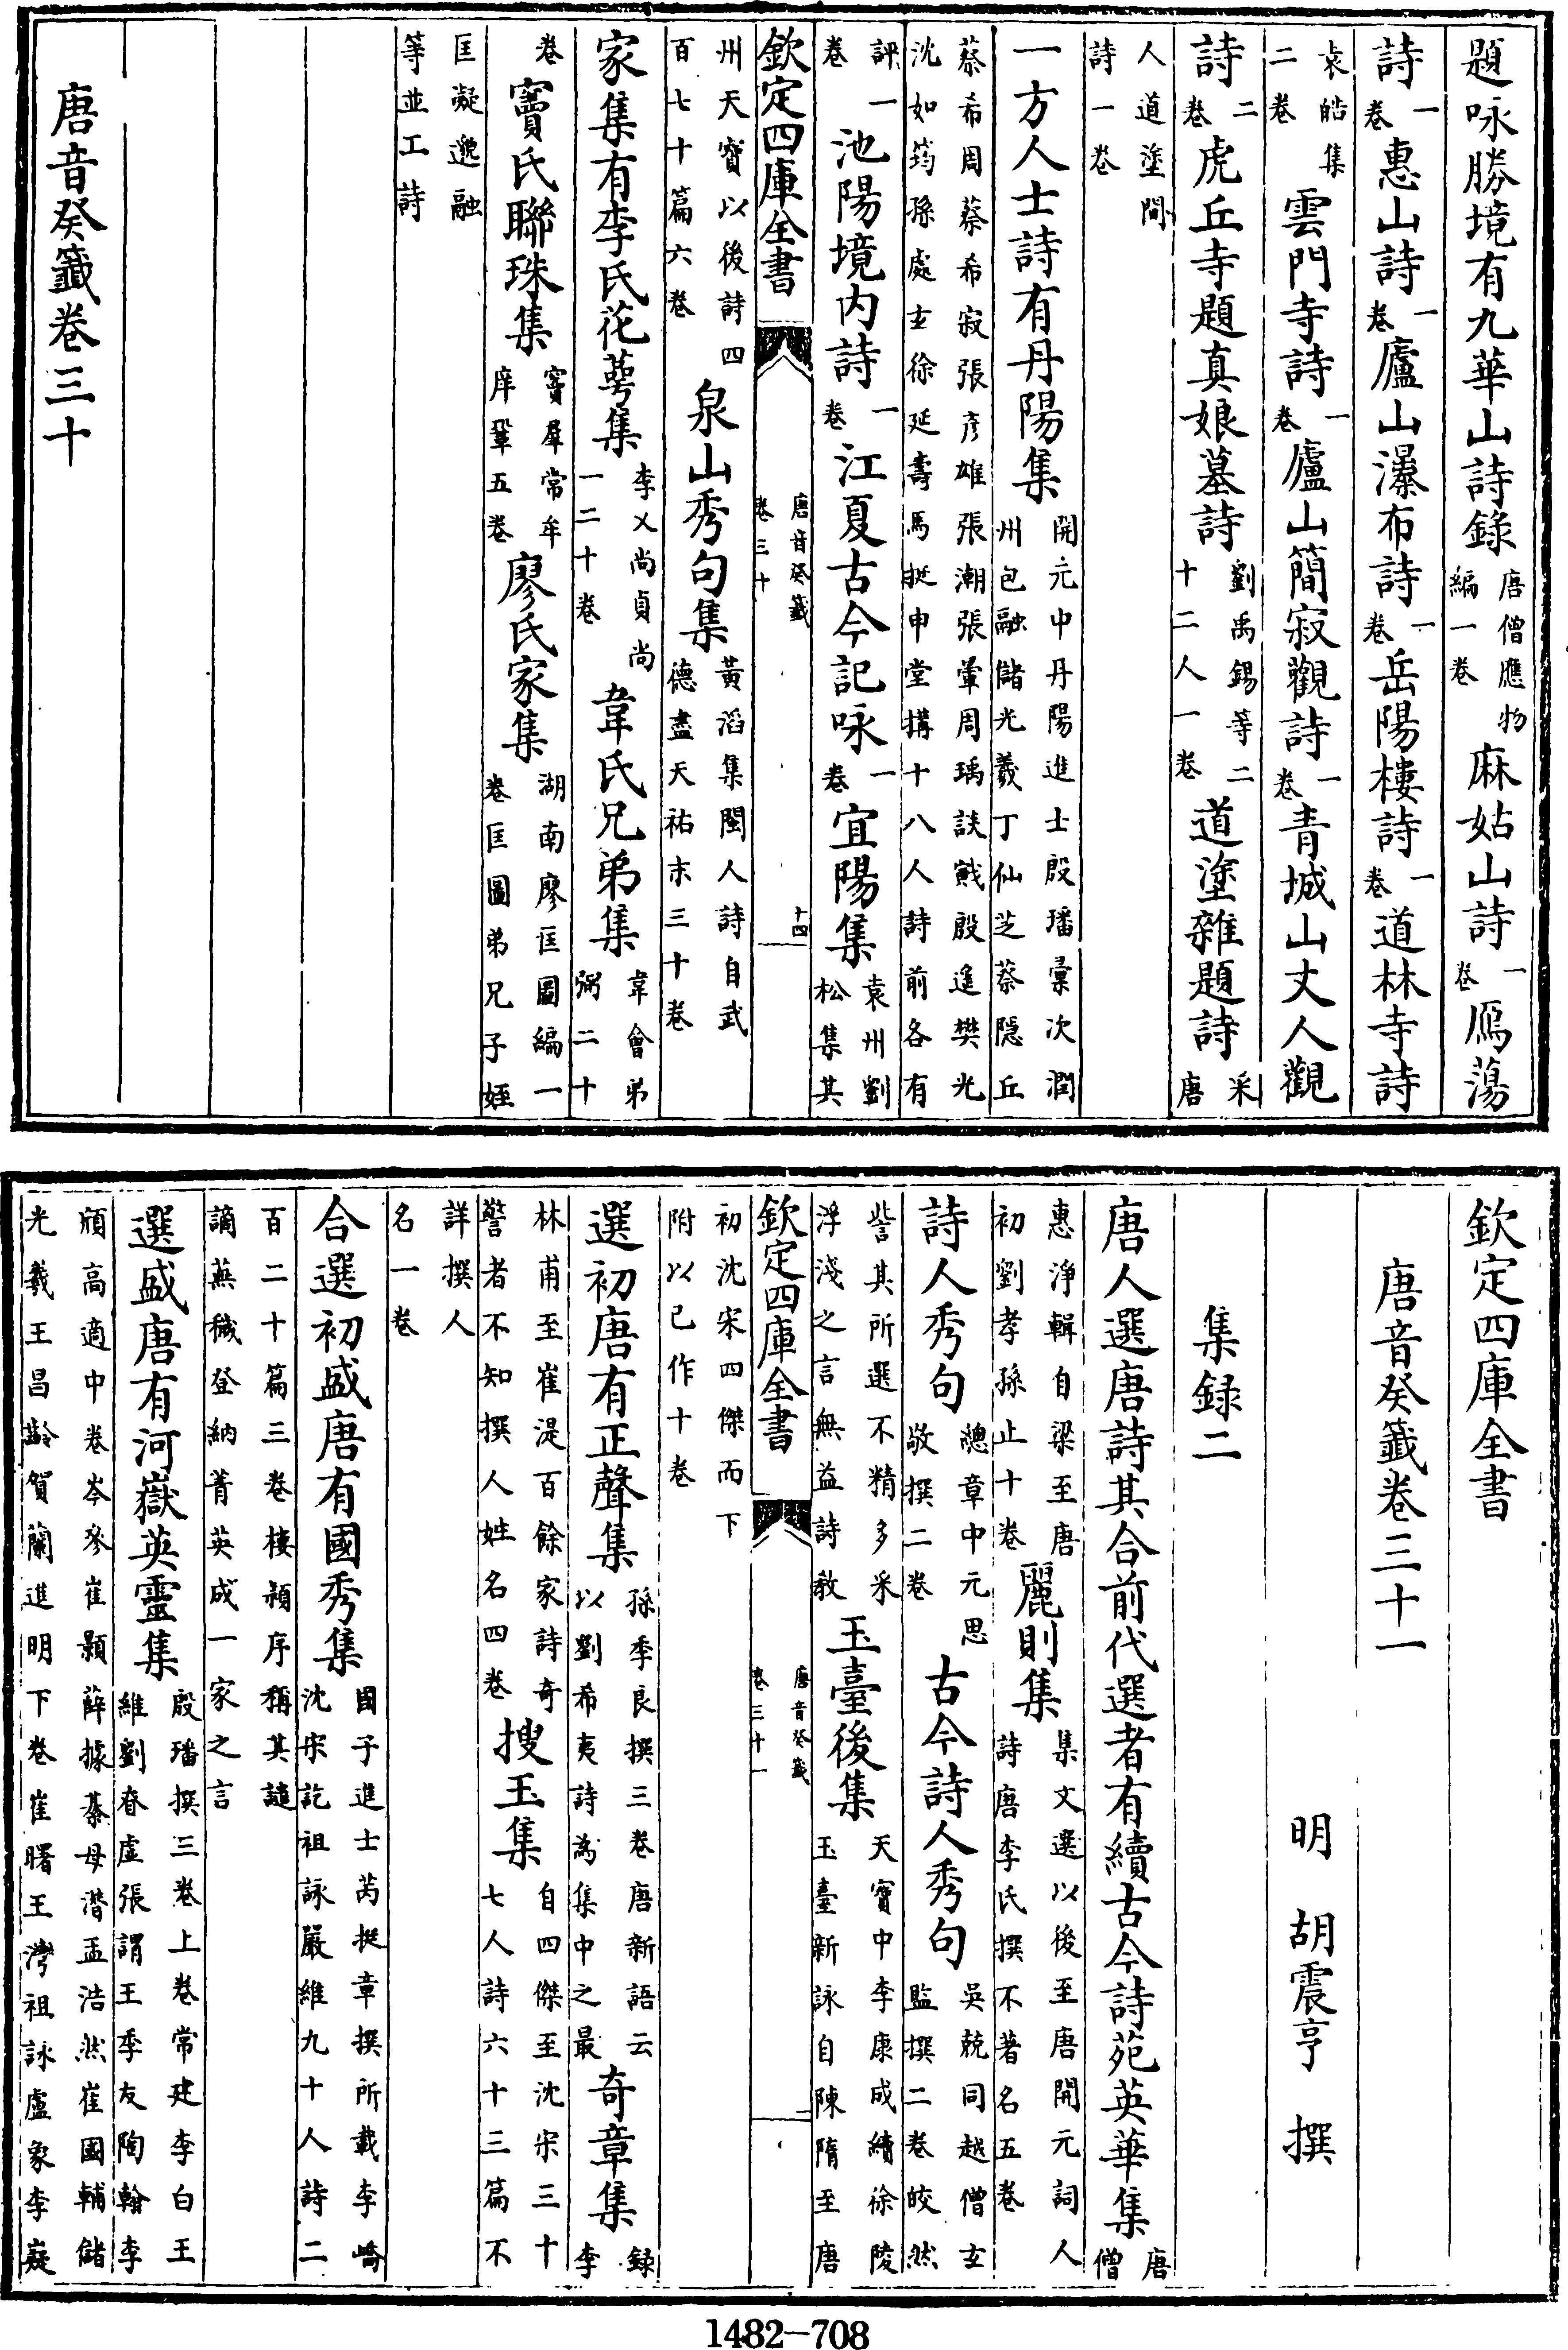 題咏勝境有九華山詩錄唐僧應物編一卷麻姑山詩一卷鴈蕩
詩一卷惠山詩一卷廬山瀑布詩一卷岳陽樓詩一卷道林寺詩
袁皓集二卷雲門寺詩一卷廬山簡寂觀詩一卷青城山丈人觀
詩二卷虎丘寺題真娘墓詩劉禹錫等二十二人一卷道塗雜題詩采唐
人道塗間詩一卷
一方人士詩有丹陽集開元中丹陽進士殷璠彚次潤州包融儲光羲丁仙芝蔡隠丘
蔡希周蔡希寂張彥雄張潮張暈周瑀談戭殷遙樊光沈如筠孫處玄徐延壽馬挺申堂搆十八人詩前各有
評一卷池陽境内詩一卷江夏古今記咏一卷宜陽集袁州劉松集其
欽定四庫全書
唐音癸籤
卷三十
十四
州天寶以後詩四百七十篇六卷泉山秀句集黃滔集閩人詩自武德盡天祐末三十卷
家集有李氏花萼集李乂尚貞尚一二十卷韋氏兄弟集韋會弟弼二十
卷竇氏聯珠集竇羣常牟庠鞏五卷廖氏家集湖南廖匡圖編一卷匡圖弟兄子姪
匡凝邈融等並工詩
唐音癸籤卷三十
欽定四庫全書
唐音癸籤卷三十一
明 胡震亨 撰
集録二
唐人選唐詩其合前代選者有續古今詩苑英華集唐僧
惠淨輯自梁至唐初劉孝孫止十卷麗則集集文選以後至唐開元詞人詩唐李氏撰不著名五卷
詩人秀句總章中元思敬撰二卷古今詩人秀句吳兢同越僧玄監撰二卷皎然
訾其所選不精多采浮淺之言無益詩教玉臺後集天寶中李康成續徐陵玉臺新詠自陳隋至唐
欽定四庫全書
唐音癸籤
卷三十一
一
初沈宋四傑而下附以已作十卷
選初唐有正聲集孫季良撰三卷唐新語云以劉希夷詩為集中之最奇章集録李
林甫至崔湜百餘家詩奇警者不知撰人姓名四卷搜玉集自四傑至沈宋三十七人詩六十三篇不
詳撰人名一卷
合選初盛唐有國秀集國子進士芮挺章撰所載李嶠沈宋訖祖詠嚴維九十人詩二
百二十篇三卷樓穎序稱其譴謫蕪穢登納菁英成一家之言
選盛唐有河嶽英靈集殷璠撰三卷上卷常建李白王維劉眘虛張謂王季友陶翰李
頎高適中卷岑參崔顥薛據綦毋潛孟浩然崔國輔儲光羲王昌齡賀蘭進明下卷崔曙王灣祖詠盧象李嶷
1482—708